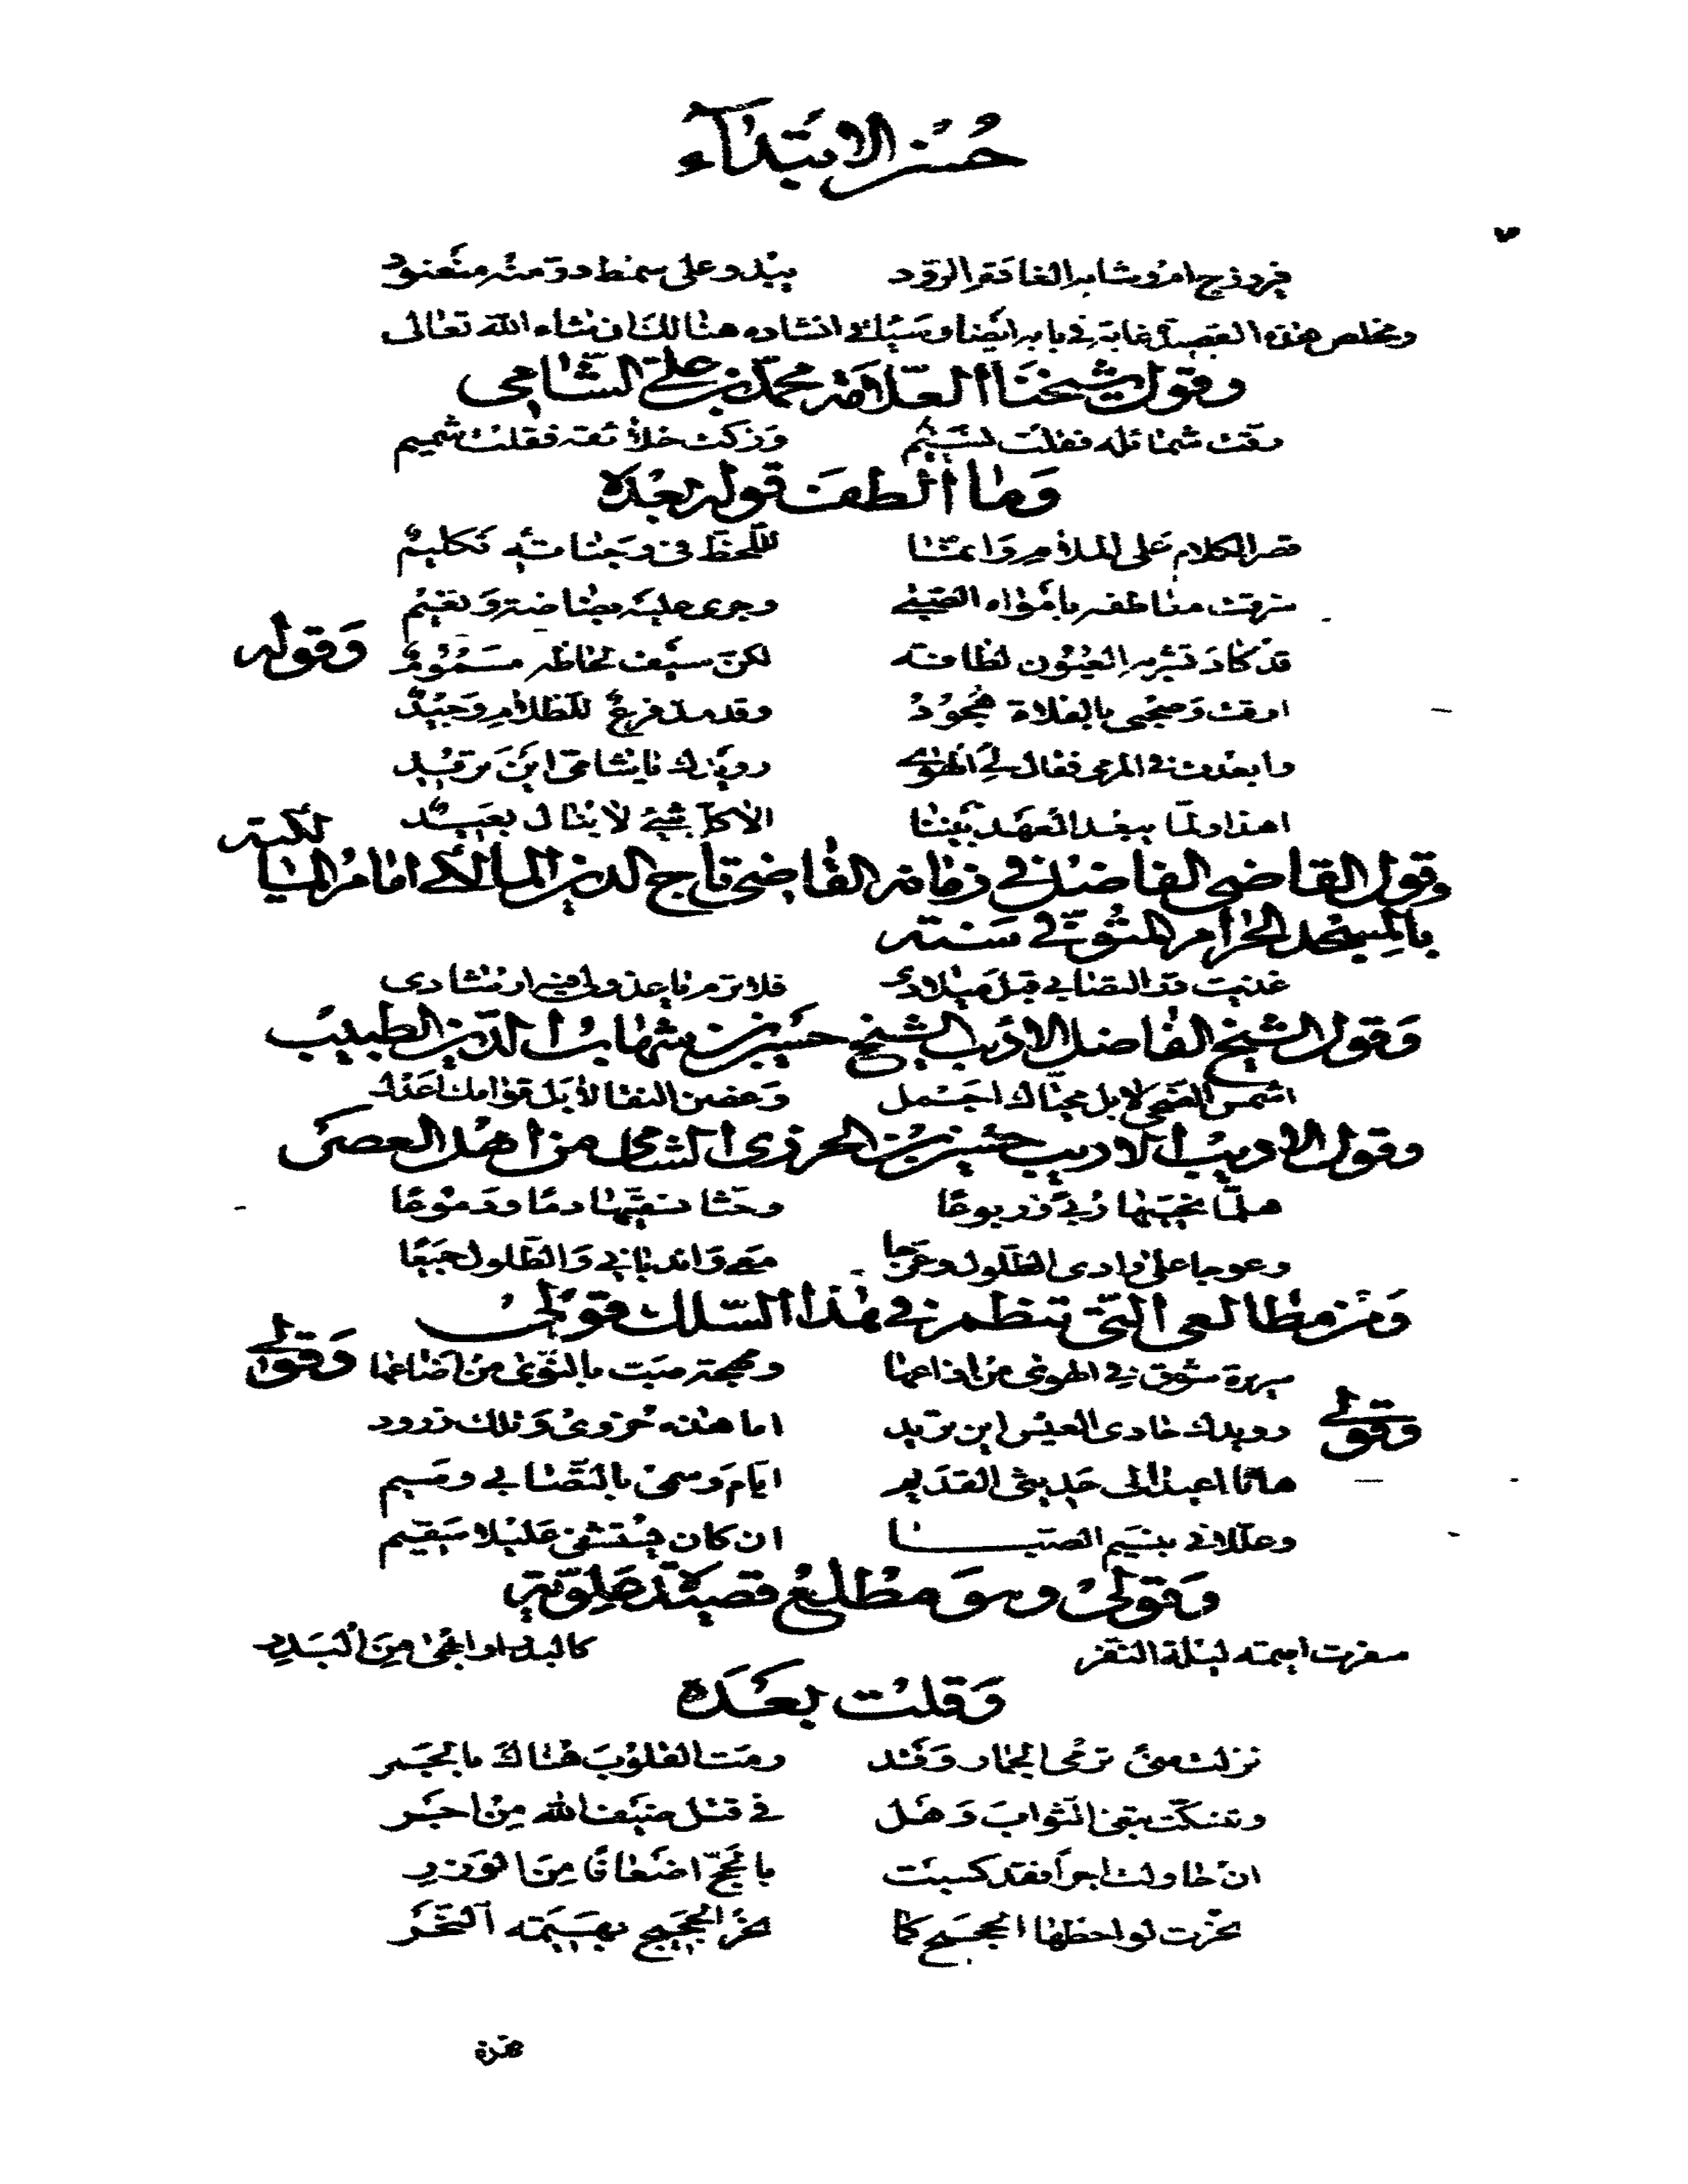 حُسْن الابتداء
٧
فيروزج ام وشام الغادة الرود يبدو على سمط در منه منضود
ومخلص هذه القصيدة غاية في بابه ايضا وسيأتي انشاده هنالك ان شاء الله تعالى
وقول شيخنا العلامة محمد بن علي الشامي
رقت شمائله فقلت نسيم وزكت خلائقه فقلت شميم
وما ألطف قوله بعده
قصر الكلام على الملام وانما للحظ في وجناته تكليم
شرقت معاطفه بأمواه الصبى وجرى عليه بضاضة ونعيم
قد كاد تشربه العيون لطافة لكن سيف لحاظه مسموم
وقوله
ارقت وصحبي بالفلاة هجود وقد مد فرع للظلام وجيد
وابعدت في المرمى فقال لي الهوى رويدك يا شامي اين تريد
اهذا ولما يبعد العهد بيننا الا كل شيء لا ينال بعيد
وقول القاضي الفاضل في زمانه القاضي تاج الدين المالكي امام المالكية
بالمسجد الحرام المتوفى في سنته
غذيت در التصابي قبل ميلادي فلا ترم يا عذولي فيه ارشادي
وقول الشيخ الفاضل الاديب الشيخ حسين بن شهاب الدين الطبيب
اشمس الضحى لا بل محياك اجمل وغصن النقا لا بل قوامك اعدل
وقول الاديب الاريب حسين بن الجزري الشامي من اهل العصر
هلما نحييها ربى وربوعا وحثا نسقيها دما ودموعا
وعوجا على وادي الطلول وعرجا معي واندباني والطلول جميعا
ومن مطالعي التي تنظم في هذا السلك قولي
سريرة شوق في الهوى من اذاعها ومهجة صبت بالنوى من اضاعها
وقولي
رويدك حادي العيس اين تريد اما هذه حزوى وتلك زرود
وقولي
هاتا اعيدا لي حديثي القديم ايام وسمي بالتصابي وسيم
وعللاني بنسيم الصبا ان كان يستشفي عليلا سقيم
وقولي وهو مطلع قصيدة علوية
سفرت اميمة ليلة النفر كالبدر او ابهى من البدر
وقلت بعده
نزلت منى ترمي الجمار وقد رمت القلوب هناك بالجمر
وتنسكت تبغي الثواب وهل في قتل ضيف الله من اجر
ان حاولت اجرا فقد كسبت بالحج اضعافا من الوزر
نحرت لواحظها الحجيج كما نحر الحجيج بهيمة النحر